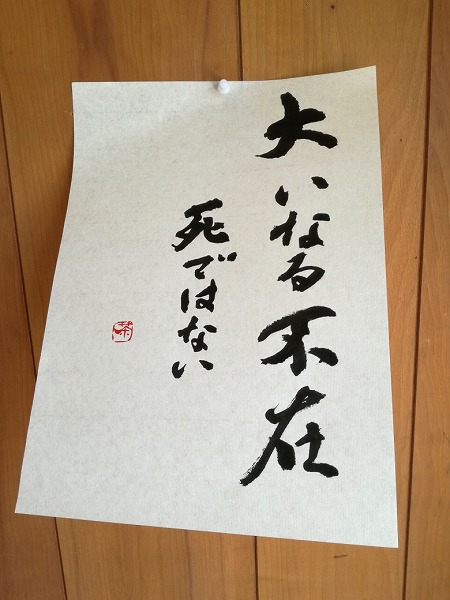 大いなる不在
死ではない